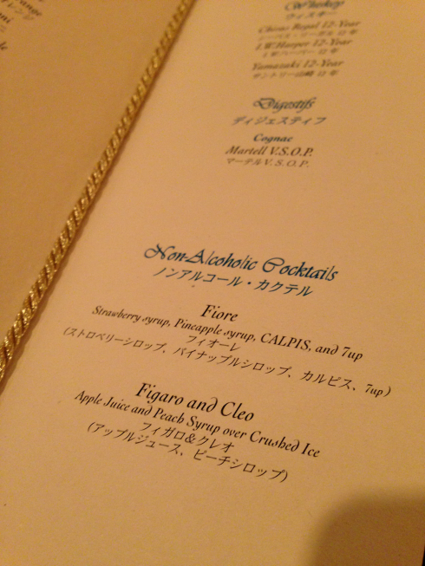 Whiskey
ウィスキー
Chivas Regal 12-Year
シーバス・リーガル 12 年
I.W.Harper 12-Year
I.W.ハーパー 12 年
Yamazaki 12-Year
サントリー山崎 12 年
Digestifs
ディジェスティフ
Cognac
Martell V.S.O.P.
マーテルV.S.O.P.
Non-Alcoholic Cocktails
ノンアルコール・カクテル
Fiore
Strawberry syrup, Pineapple syrup, CALPIS, and 7up
フィオーレ
(ストロベリーシロップ、パイナップルシロップ、カルピス、7up)
Figaro and Cleo
Apple Juice and Peach Syrup over Crushed Ice
フィガロ&クレオ
(アップルジュース、ピーチシロップ)